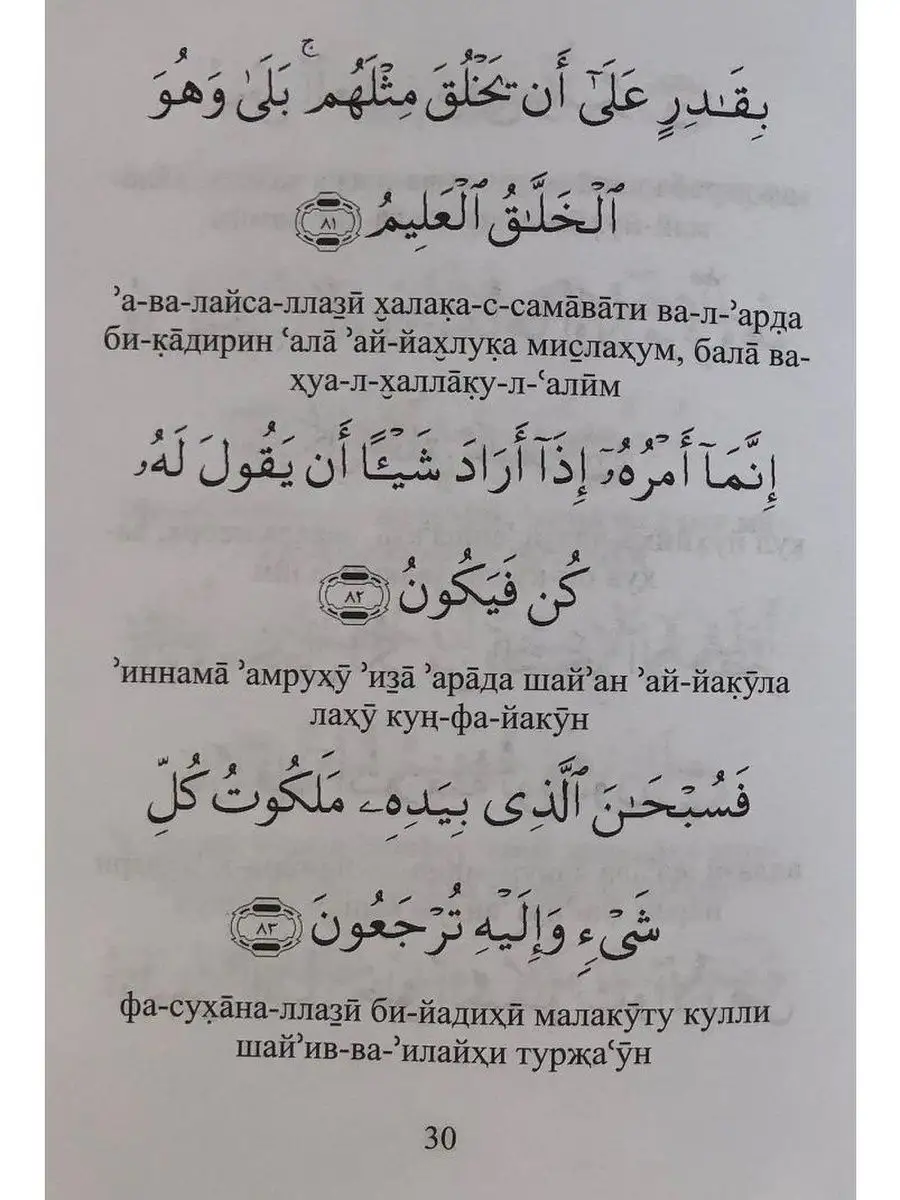 بِقَـٰدِرٍ عَلَىٰٓ أَن يَخۡلُقَ مِثۡلَهُم ۚ بَلَىٰ وَهُوَ
ٱلۡخَلَّـٰقُ ٱلۡعَلِيمُ ٨١
ʾа-ва-лайса-ллаз̱ӣ х̮алак̣а-с-сама̄ва̄ти ва-л-ʾард̣а
би-к̣а̄дирин ʿала̄ ʾай-йах̮лук̣а мис̱лаҳум, бала̄ ва-
ҳуа-л-х̮алла̄к̣у-л-ʿалӣм
إِنَّمَآ أَمۡرُهُۥٓ إِذَآ أَرَادَ شَيۡـًٔا أَن يَقُولَ لَهُۥ
كُن فَيَكُونُ ٨٢
ʾиннама̄ ʾамруҳӯ ʾиз̱а̄ ʾара̄да шайʾан ʾай-йак̣ӯла
лаҳӯ куң-фа-йакӯн
فَسُبۡحَـٰنَ ٱلَّذِى بِيَدِهِۦ مَلَكُوتُ كُلِّ
شَىۡءٍ وَإِلَيۡهِ تُرۡجَعُونَ ٨٣
фа-сух̣а̄на-ллаз̱ӣ би-йадиҳӣ малакӯту кулли
шайʾив-ва-ʾилайҳи турҗаʿӯн
30